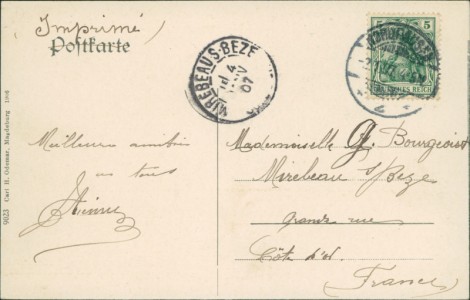 Imprimé
Postkarte
MIREBEAU-S-BEZE
4
07
5 5
DEUTSCHES REICH
Meilleure amitié
à tous
Mademoiselle G. Bourgeois
Mirebeau s/Beze
Grande rue
Côte d'or
France
9023 Carl H. Odemar, Magdeburg